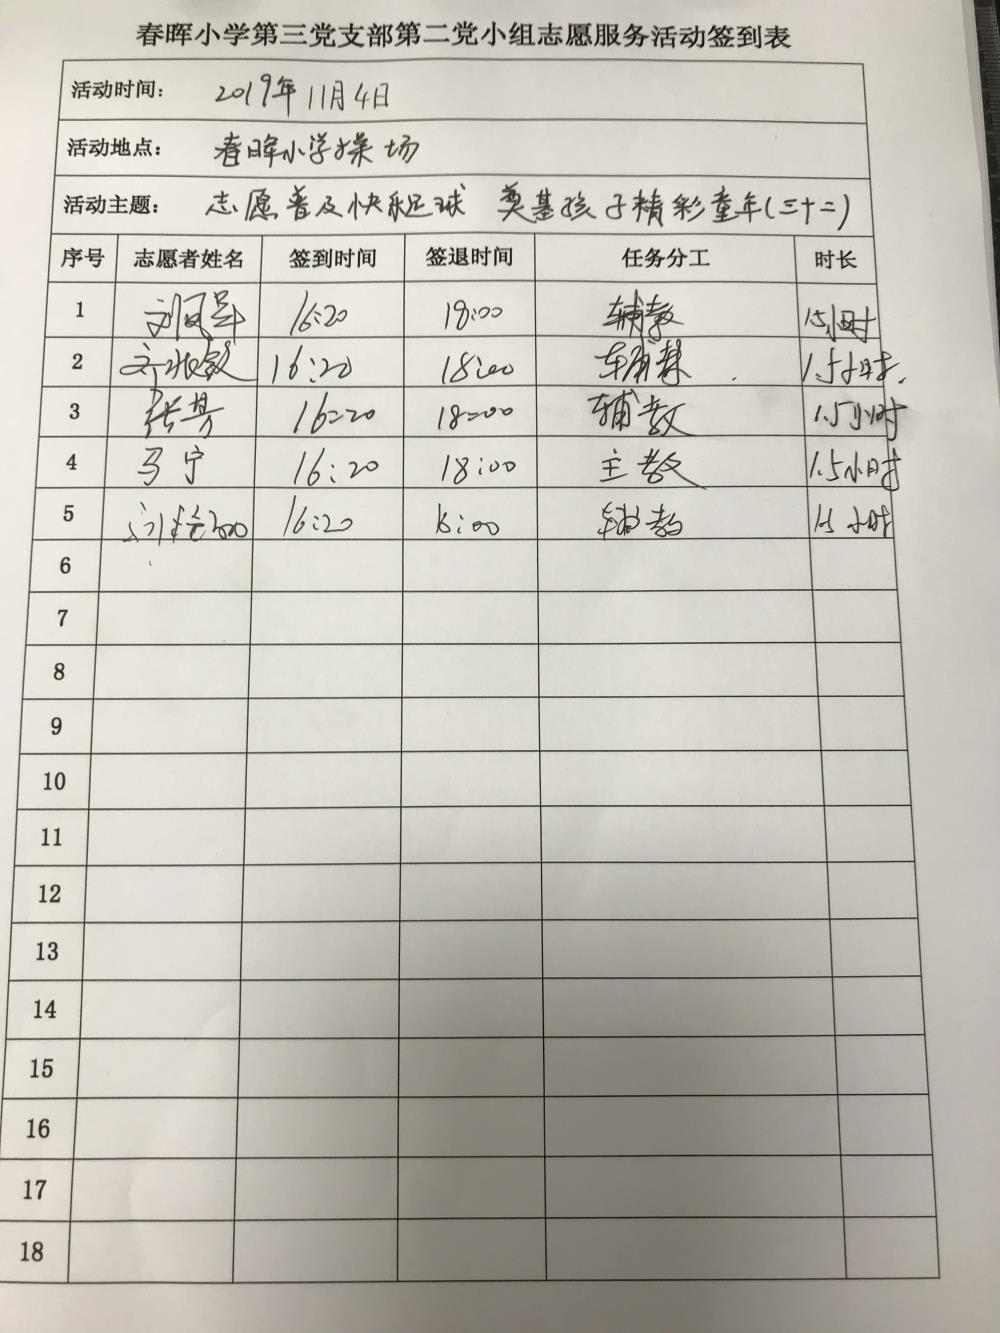 春晖小学第三党支部第二党小组志愿服务活动签到表
活动时间： 2019年11月4日
活动地点： 春晖小学操场
活动主题： 志愿普及快乐足球 奠基孩子精彩童年(三十二)
序号 志愿者姓名 签到时间 签退时间 任务分工 时长
1 16:20 18:00 辅教 1.5小时
2 16:20 18:00 辅教 1.5小时.
3 16:20 18:00 辅教 1.5小时
4 马宁 16:20 18:00 主教 1.5小时
5 16:20 18:00 辅教 1.5小时
6
7
8
9
10
11
12
13
14
15
16
17
18